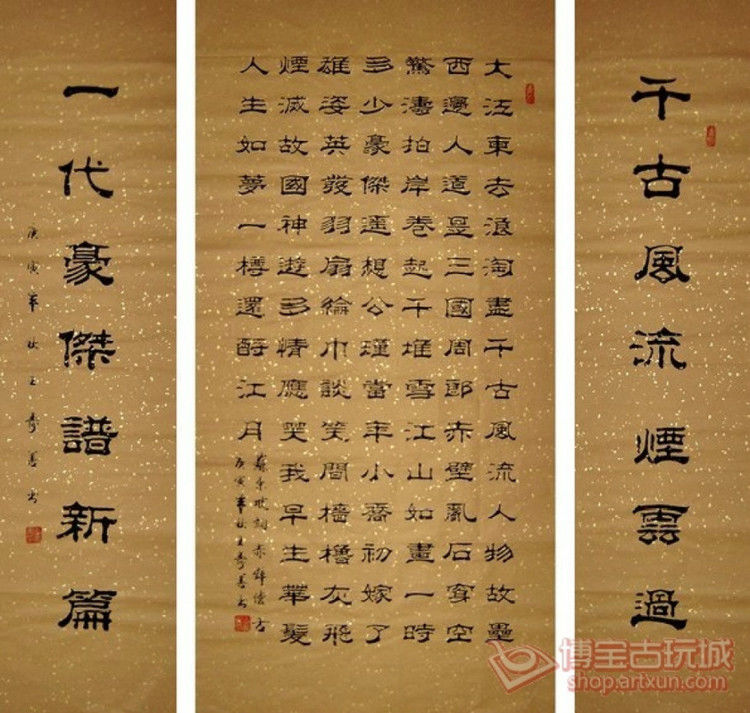 千古風流煙雲過
大江東去浪淘盡千古風流人物故壘
西邊人道昰三國周郎赤壁亂石穿空
驚濤拍岸卷起千堆雪江山如畫一時
多少豪傑遙想公瑾當年小喬初嫁了
雄姿英發羽扇綸巾談笑間檣櫓灰飛
煙滅故國神遊多情應笑我早生華髮
人生如夢一樽還酹江月
蘇東坡詞赤壁懷古
庚寅年秋王壽善書
一代豪傑譜新篇
庚寅年秋王壽善書
博宝古玩城
shop.artxun.com